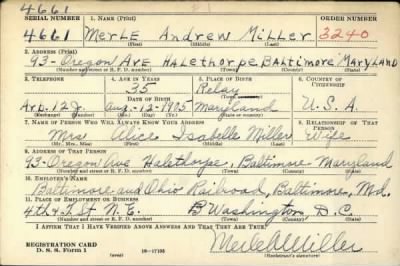 4661
SERIAL NUMBER 1. NAME (Print) ORDER NUMBER
4661 Merle Andrew Miller 3240
(First) (Middle) (Last)
2. ADDRESS (Print)
93-Oregon Ave Halethorpe Baltimore Maryland
(Number and street or R. F. D. number) (Town) (County) (State)
3. TELEPHONE 4. AGE IN YEARS 5. PLACE OF BIRTH 6. COUNTRY OF CITIZENSHIP
35 Relay
DATE OF BIRTH (Town or county)
Arb. 12J. Aug-12-1905 Maryland U.S.A.
(Exchange) (Number) (Mo.) (Day) (Yr.) (State or country)
7. NAME OF PERSON WHO WILL ALWAYS KNOW YOUR ADDRESS 8. RELATIONSHIP OF THAT PERSON
Mrs Alice Isabelle Miller Wife
(Mr., Mrs., Miss) (First) (Middle) (Last)
9. ADDRESS OF THAT PERSON
93-Oregon Ave Halethorpe, Baltimore Maryland
(Number and street or R. F. D. number) (Town) (County) (State)
10. EMPLOYER'S NAME
Baltimore and Ohio Railroad, Baltimore, Md.
11. PLACE OF EMPLOYMENT OR BUSINESS
4th & T. St. N.E. Washington D.C.
(Number and street or R. F. D. number) (Town) (County) (State)
I AFFIRM THAT I HAVE VERIFIED ABOVE ANSWERS AND THAT THEY ARE TRUE.
REGISTRATION CARD
D. S. S. Form 1 16-17105 Merle A Miller
(Registrant's signature)